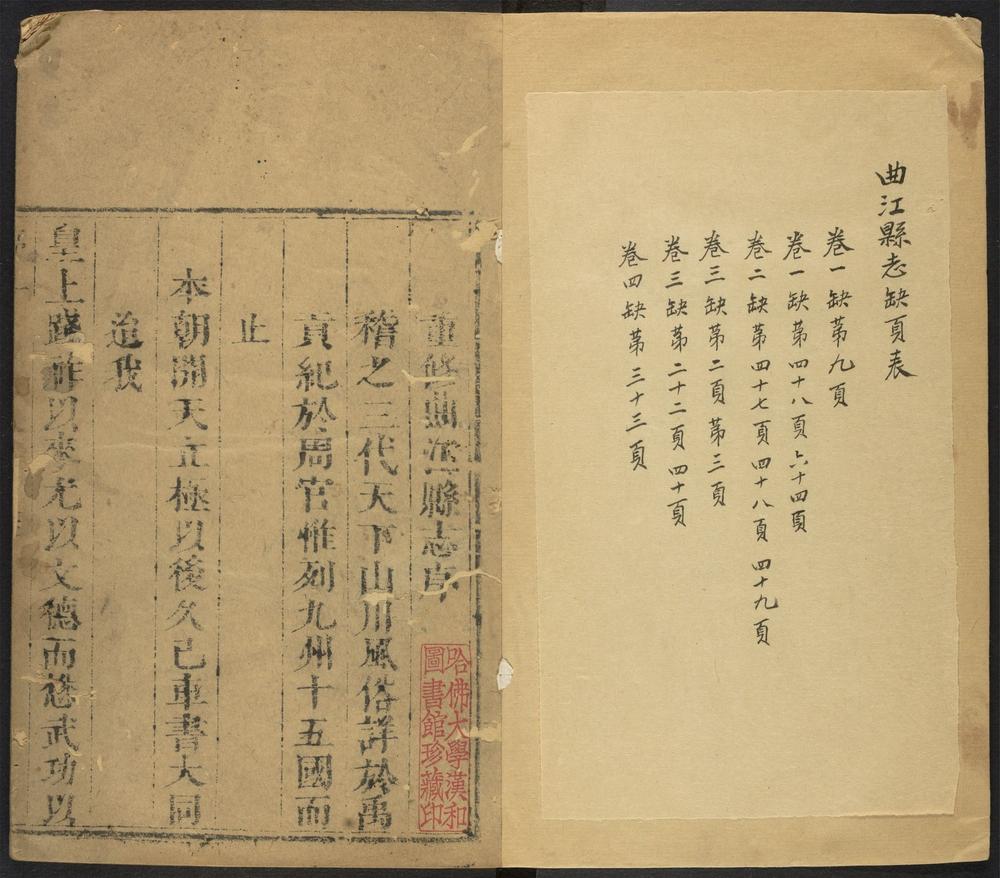 曲江縣志缺頁表
卷一缺第九頁
卷一缺第四十八頁 六十四頁
卷二缺第四十七頁 四十八頁 四十九頁
卷三缺第二頁 第三頁
卷三缺第二十二頁 四十頁
卷四缺第三十三頁
重修曲江縣志序
稽之三代天下山川風俗詳於禹
貢紀於周官惟列九州十五國而
止
本朝開天立極以後久已車書大同
迨我
皇上踐祚以來尤以文德而懋武功以
哈佛大學漢和
圖書館珍藏印